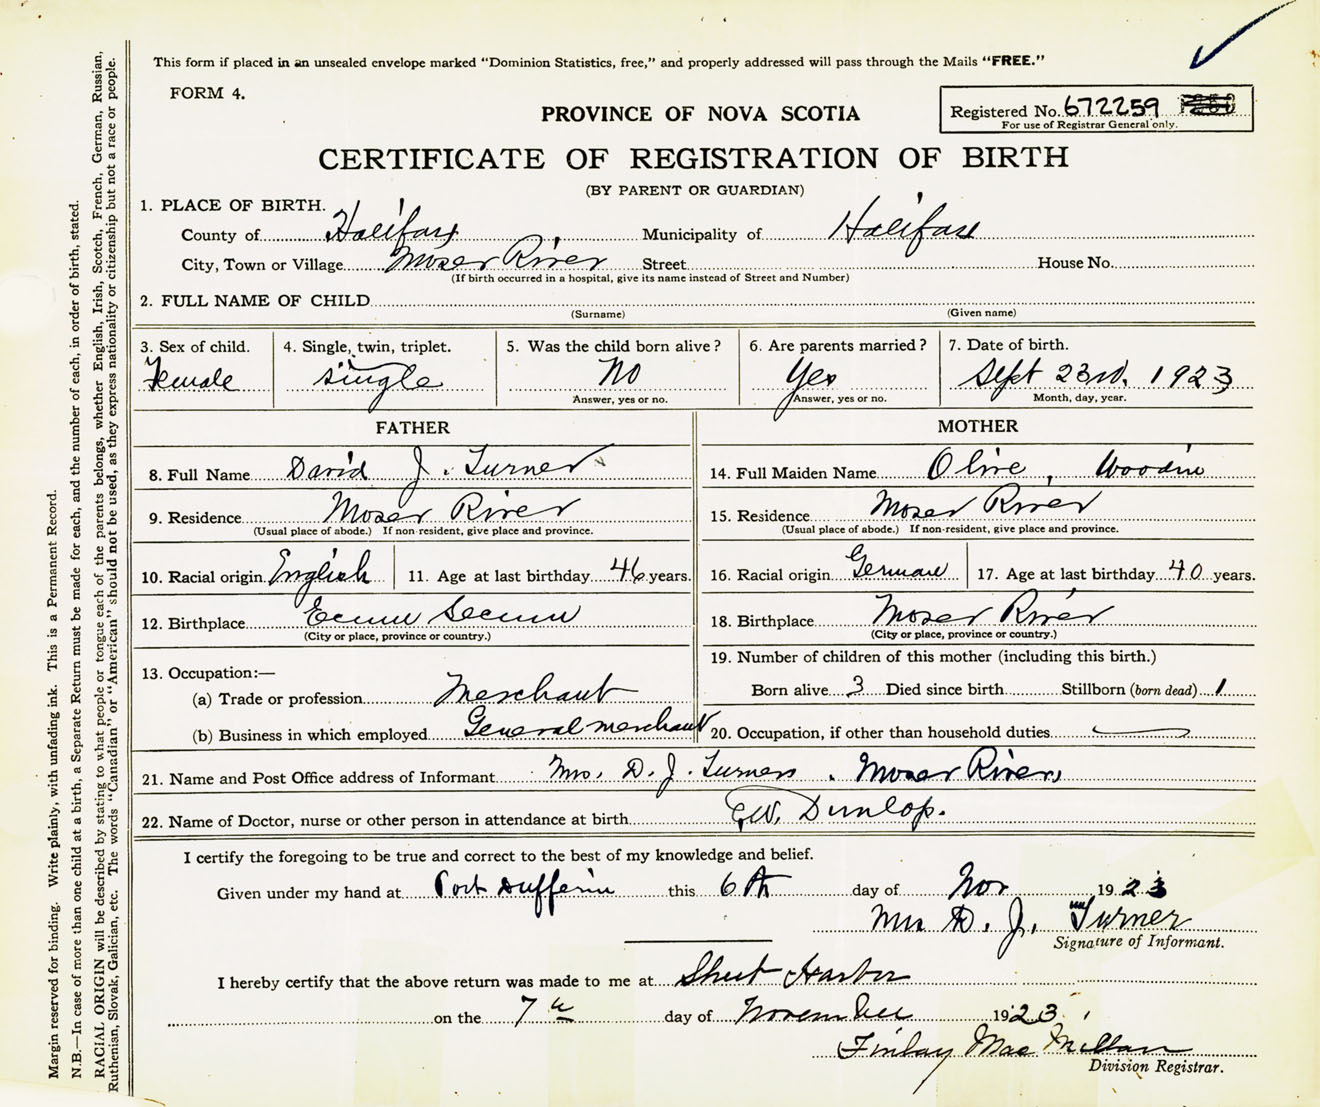 This form if placed in an unsealed envelope marked "Dominion Statistics, free," and properly addressed will pass through the Mails "FREE."
FORM 4.
PROVINCE OF NOVA SCOTIA
Registered No. 672259
For use of Registrar General only.
CERTIFICATE OF REGISTRATION OF BIRTH
(BY PARENT OR GUARDIAN)
1. PLACE OF BIRTH.
County of Halifax Municipality of Halifax
City, Town or Village Moser River Street House No.
(If birth occurred in a hospital, give its name instead of Street and Number)
2. FULL NAME OF CHILD
(Surname) (Given name)
3. Sex of child. 4. Single, twin, triplet. 5. Was the child born alive? 6. Are parents married? 7. Date of birth.
Female single No Yes Sept 23rd, 1923
Answer, yes or no. Answer, yes or no. Month, day, year.
FATHER MOTHER
8. Full Name David J. Turner 14. Full Maiden Name Olive, Woodin
9. Residence Moser River 15. Residence Moser River
(Usual place of abode.) If non-resident, give place and province. (Usual place of abode.) If non-resident, give place and province.
10. Racial origin. English 11. Age at last birthday 46 years. 16. Racial origin German 17. Age at last birthday 40 years.
12. Birthplace Ecum Secum 18. Birthplace Moser River
(City or place, province or country.) (City or place, province or country.)
19. Number of children of this mother (including this birth.)
13. Occupation:—
Born alive 3 Died since birth Stillborn (born dead) 1
(a) Trade or profession Merchant
(b) Business in which employed General merchant 20. Occupation, if other than household duties
21. Name and Post Office address of Informant Mrs. D. J. Turner, Moser River,
22. Name of Doctor, nurse or other person in attendance at birth Dunlop.
I certify the foregoing to be true and correct to the best of my knowledge and belief.
Given under my hand at Port Dufferin this 6th day of Nov 1923
Mrs D. J. Turner
Signature of Informant.
I hereby certify that the above return was made to me at Sheet Harbor
on the 7th day of November 1923
Finlay MacMillan
Division Registrar.
Margin reserved for binding. Write plainly, with unfading ink. This is a Permanent Record.
N.B.—In case of more than one child at a birth, a Separate Return must be made for each, and the number of each, in order of birth, stated.
RACIAL ORIGIN will be described by stating to what people or tongue each of the parents belongs, whether English, Irish, Scotch, French, German, Russian,
Ruthenian, Slovak, Galician, etc. The words "Canadian" or "American" should not be used, as they express nationality or citizenship but not a race or people.